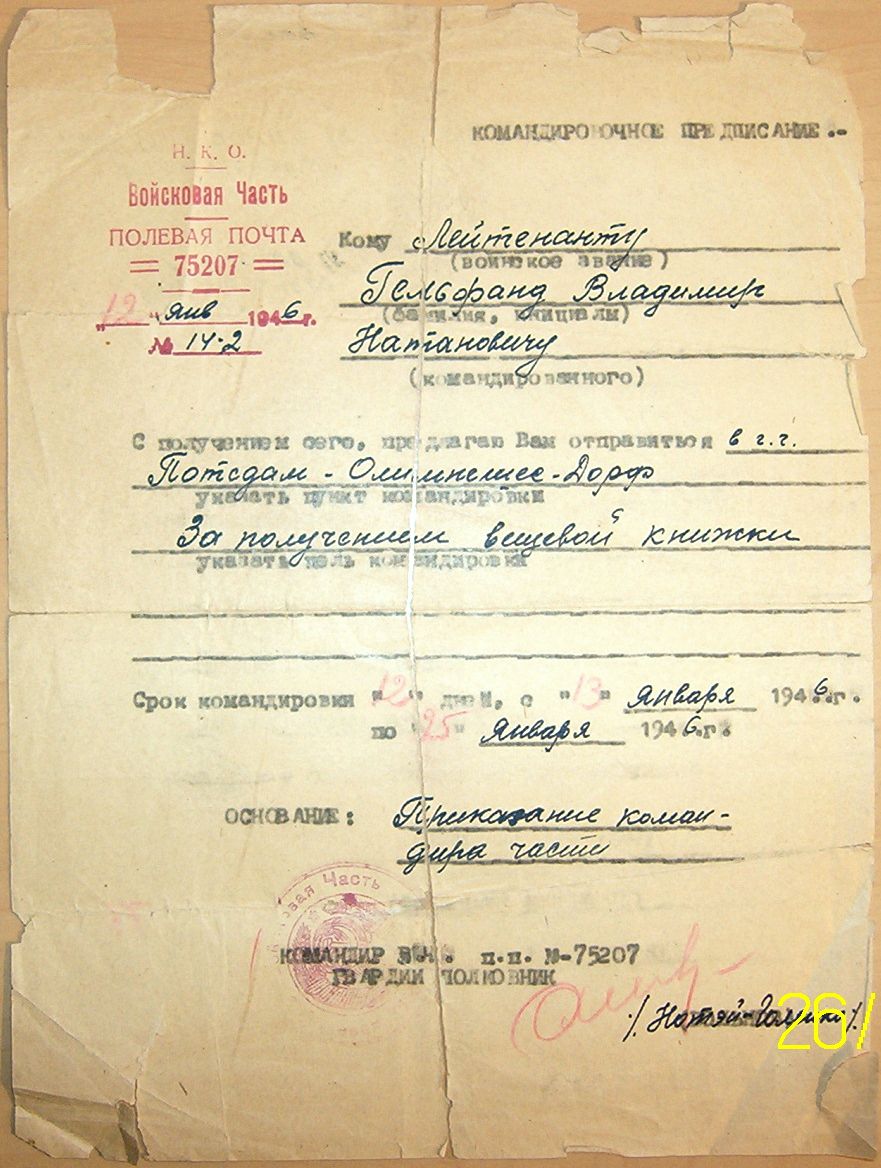 КОМАНДИРОВОЧНОЕ ПРЕДПИСАНИЕ.-
Н. К. О.
Войсковая Часть
ПОЛЕВАЯ ПОЧТА
75207
"12" янв 1946г.
№ 14-2
Кому Лейтенанту
(воинское звание)
Гельфанд Владимир
(фамилия, инициалы)
Натановичу
(командированного)
С получением сего, предлагаю Вам отправиться в г.г.
Потсдам - Олимпешес-Дорф
указать пункт командировки
За получением вещевой книжки
указать цель командировки
Срок командировки "12" дней, с "13" января 1946.г.
по "25" января 1946.г.
ОСНОВАНИЕ: Приказание коман-
дира части
Войсковая Часть
КОМАНДИР п.п. №-75207
ГВАРДИИ ПОЛКОВНИК
26/